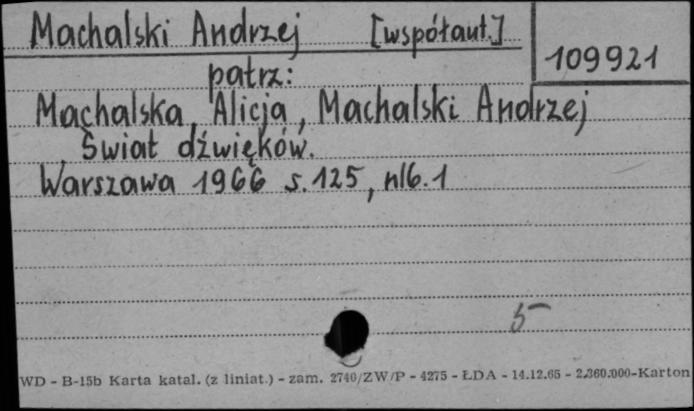 Machalski Andrzej [współaut.]
109921
patrz:
Machalska, Alicja, Machalski Andrzej
Świat dźwięków.
Warszawa 1966 s. 125, nlb. 1
5
WD - B-15b Karta katal. (z liniat.) - zam. 2740/ZW/P - 4275 - ŁDA - 14.12.65 - 2.360.000-Karton